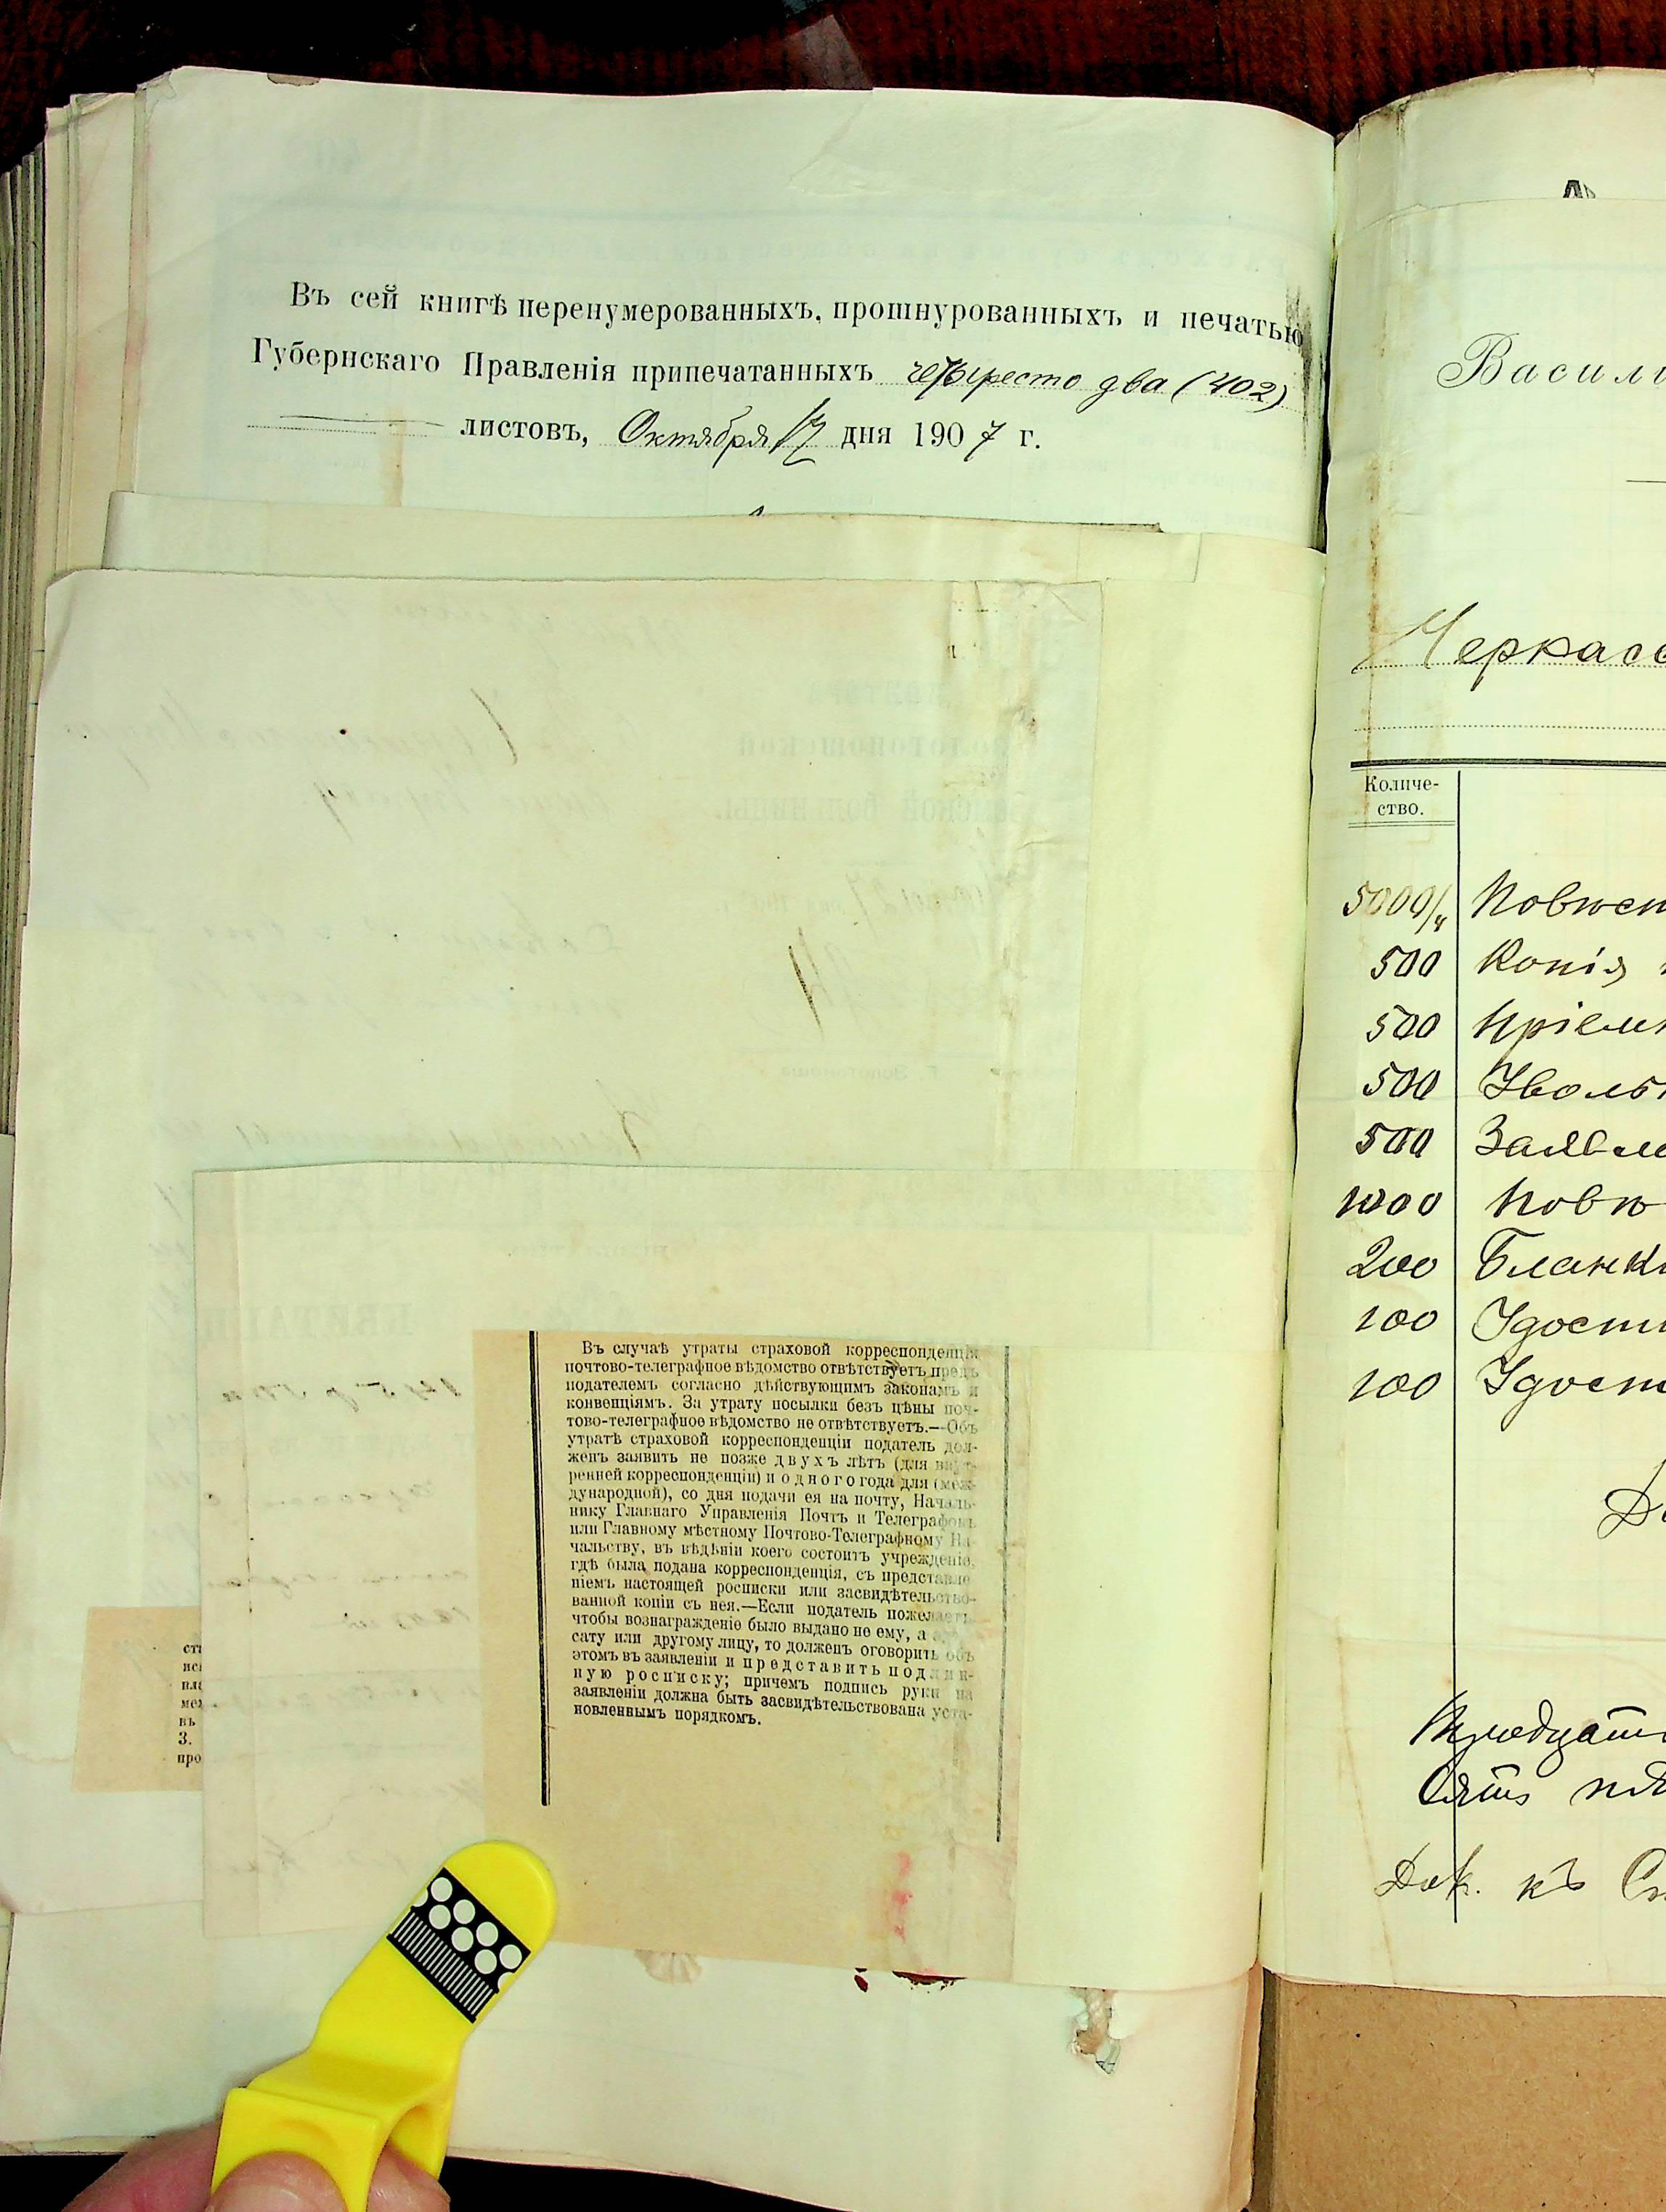 Въ сей книгѣ перенумерованныхъ, прошнурованныхъ и печатью
Губернскаго Правленія припечатанныхъ четыреста два (402)
листовъ, Октября 17 дня 1907 г.
Въ случаѣ утраты страховой корреспонденціи
почтово-телеграфное вѣдомство отвѣтствуетъ предъ
подателемъ согласно дѣйствующимъ законамъ и
конвенціямъ. За утрату посылки безъ цѣны поч-
тово-телеграфное вѣдомство не отвѣтствуетъ.—Объ
утратѣ страховой корреспонденціи податель дол-
женъ заявить не позже двухъ лѣтъ (для внут-
ренней корреспонденціи) и одного года для (меж-
дународной), со дня подачи ея на почту, Началь-
нику Главнаго Управленія Почтъ и Телеграфовъ
или Главному мѣстному Почтово-Телеграфному На-
чальству, въ вѣдѣніи коего состоитъ учрежденіе,
гдѣ была подана корреспонденція, съ представле-
ніемъ настоящей росписки или засвидѣтельство-
ванной копіи съ нея.—Если податель пожелаетъ,
чтобы вознагражденіе было выдано не ему, а
сату или другому лицу, то долженъ оговорить объ
этомъ въ заявленіи и представить подлин-
ную росписку; причемъ подпись руки на
заявленіи должна быть засвидѣтельствована уста-
новленнымъ порядкомъ.
ста
исп
пла
меж
въ
3.
про
Васили
Черкасс
Количе-
ство.
5000/ч Повѣст
500 Копія
500 Пріемн
500 Уволь
500 Заявле
1000 Повѣ
200 Бланки
100 Удост
100 Удост
Дов. къ